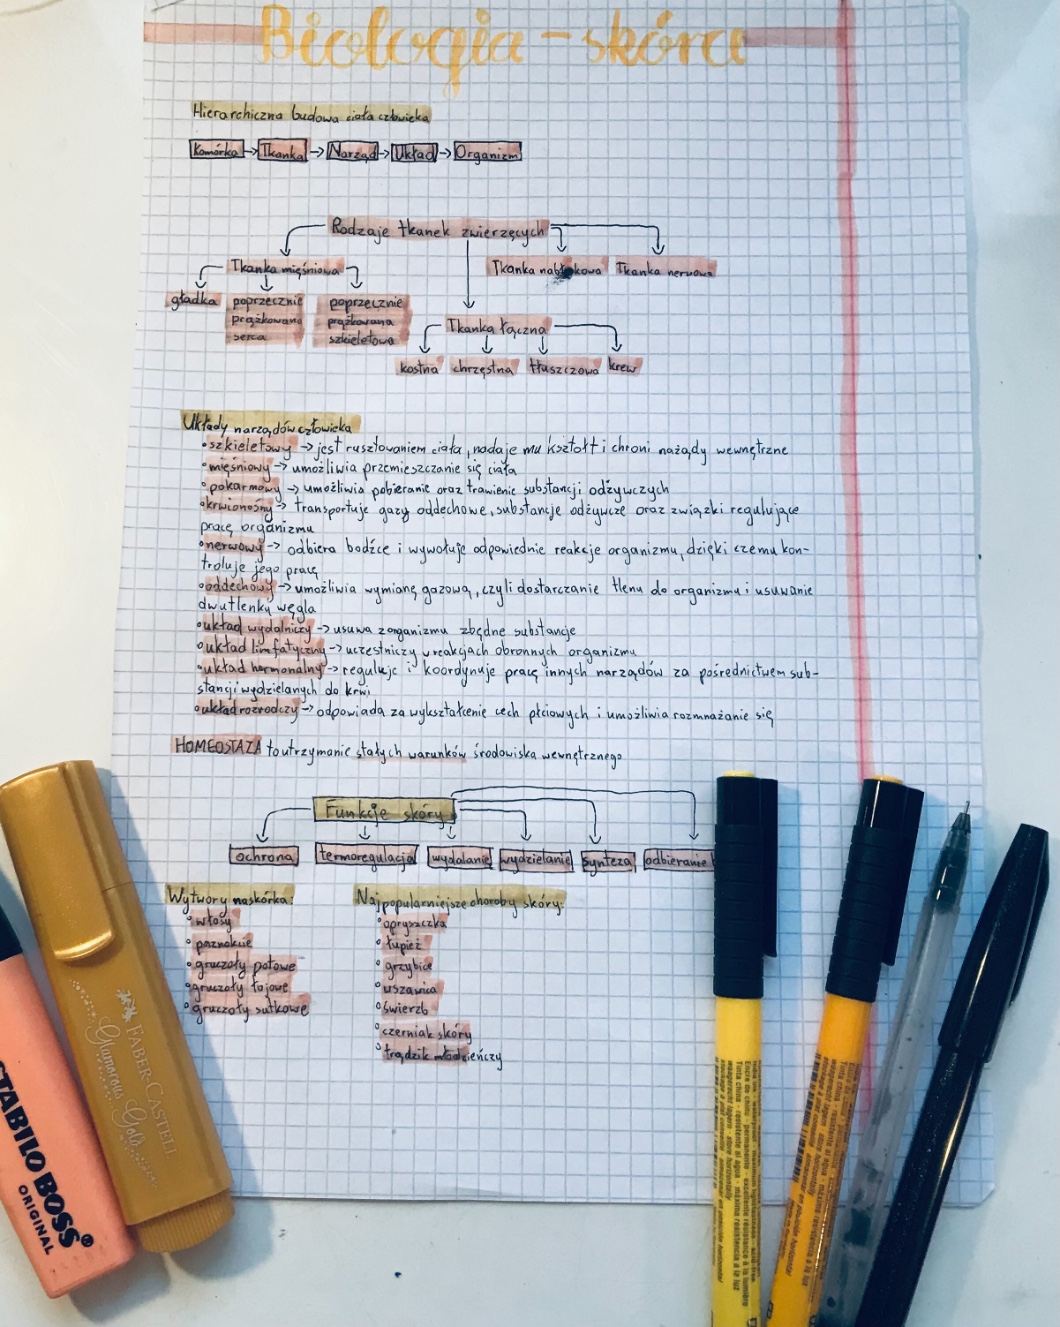 Biologia - skóra
Hierarchiczna budowa ciała człowieka
Komórka → Tkanka → Narząd → Układ → Organizm
Rodzaje tkanek zwierzęcych
Tkanka mięśniowa
Tkanka nabłonkowa
Tkanka nerwowa
gładka
poprzecznie
prążkowana
serca
poprzecznie
prążkowana
szkieletowa
Tkanka łączna
kostna
chrzęstna
tłuszczowa
krew
Układy narządów człowieka
• szkieletowy → jest rusztowaniem ciała, nadaje mu kształt i chroni nażądy wewnętrzne
• mięśniowy → umożliwia przemieszczanie się ciała
• pokarmowy → umożliwia pobieranie oraz trawienie substancji odżywczych
• krwionośny → transportuje gazy oddechowe, substancje odżywcze oraz związki regulujące
pracę organizmu
• nerwowy → odbiera bodźce i wywołuje odpowiednie reakcje organizmu, dzięki czemu kon-
troluje jego pracę
• oddechowy → umożliwia wymianę gazową, czyli dostarczanie tlenu do organizmu i usuwanie
dwutlenku węgla
• układ wydalniczy → usuwa z organizmu zbędne substancje
• układ limfatyczny → uczestniczy w reakcjach obronnych organizmu
• układ hormonalny → reguluje i koordynuje pracę innych narządów za pośrednictwem sub-
stancji wydzielanych do krwi
• układ rozrodczy → odpowiada za wykształcenie cech płciowych i umożliwia rozmnażanie się
HOMEOSTAZA to utrzymanie stałych warunków środowiska wewnętrznego
Funkcje skóry
ochrona
termoregulacja
wydalanie
wydzielanie
synteza
odbieranie
Wytwory naskórka:
• włosy
• paznokcie
• gruczoły potowe
• gruczoły łojowe
• gruczoły sutkowe
Najpopularniejsze choroby skóry:
• opryszczka
• łupież
• grzybica
• wszawica
• świerzb
• czerniak skóry
• trądzik młodzieńczy
STABILO BOSS®
ORIGINAL
FABER-CASTELL
Glamorous Gold